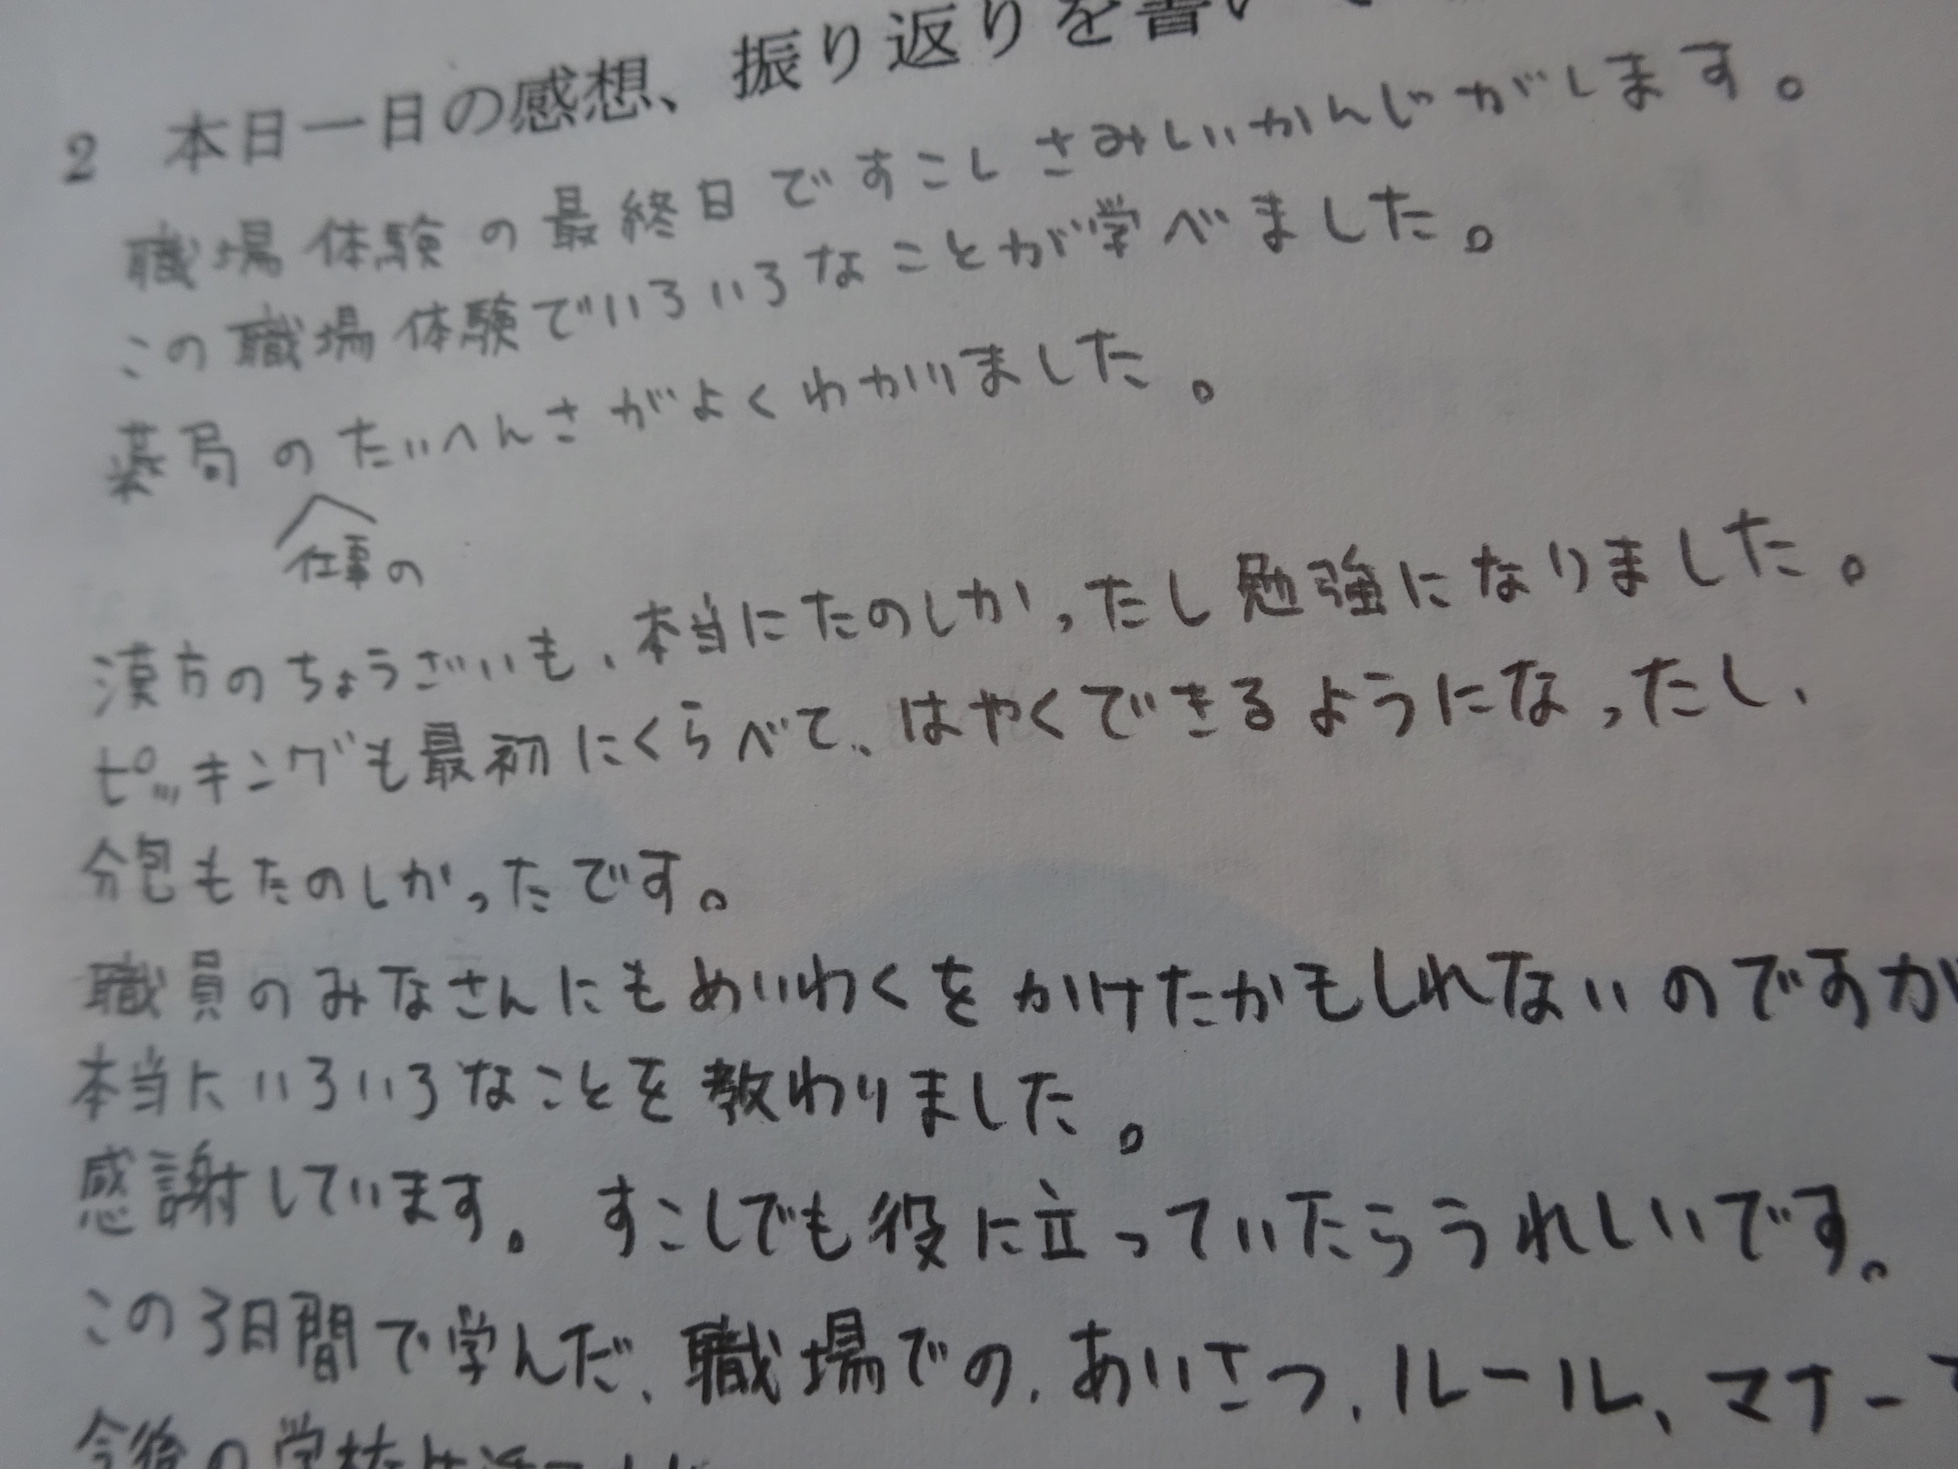 2 本日一日の感想、振り返りを書い
職場体験の最終日ですこしさみしいかんじがします。
この職場体験でいろいろなことが学べました。
薬局のたいへんさがよくわかりました。
仕事の
漢方のちょうざいも、本当にたのしかったし勉強になりました。
ピッキングも最初にくらべて、はやくできるようになったし、
分包もたのしかったです。
職員のみなさんにもめいわくをかけたかもしれないのですが
本当にいろいろなことを教わりました。
感謝しています。すこしでも役に立っていたらうれしいです。
この3日間で学んだ、職場での、あいさつ、ルール、マナー
今後の学校生活